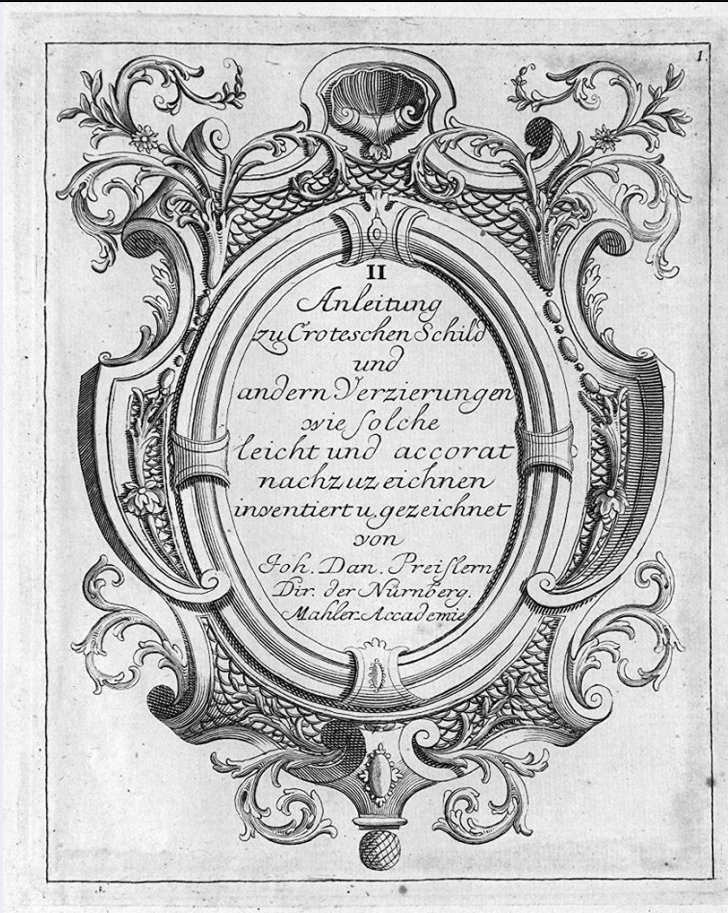 1.
II
Anleitung
zu Croteschen Schild
und
andern Verzierungen
wie ſolche
leicht und accorat
nachzuzeichnen
inventiert u. gezeichnet
von
Joh. Dan. Preiſlern
Dir. der Nürnberg.
Mahler-Accademie